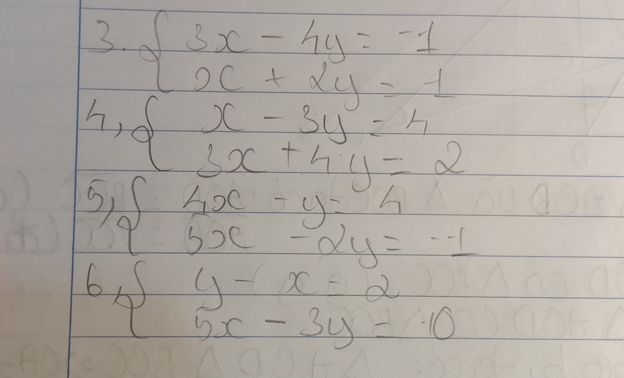 3. { 3x - 4y = -1
x + 2y = 1
4, { x - 3y = 4
3x + 4y = 2
5, { 4x - y = 4
5x - 2y = -1
6, { y - x = 2
5x - 3y = 10